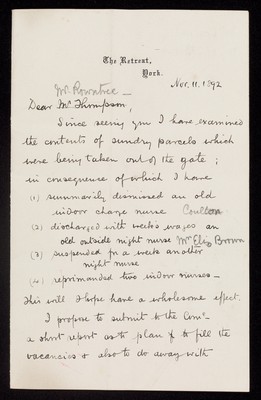 The Retreat,
York.
Nov. 11. 1892
Mr. Rowntree —
Dear Mr Thompson,
Since seeing you I have examined
the contents of sundry parcels which
were being taken out of the gate ;
in consequence of which I have
(1) summarily dismissed an old
indoor charge nurse Coulson
(2) discharged with weeks wages an
old outside night nurse Mrs Eliz Brown
(3) suspended for a weeks another
night nurse
(4) reprimanded two indoor nurses —
this will I hope have a wholesome effect.
I propose to submit to the Comee
a short report as to plan to fill the
vacancies & also to do away with